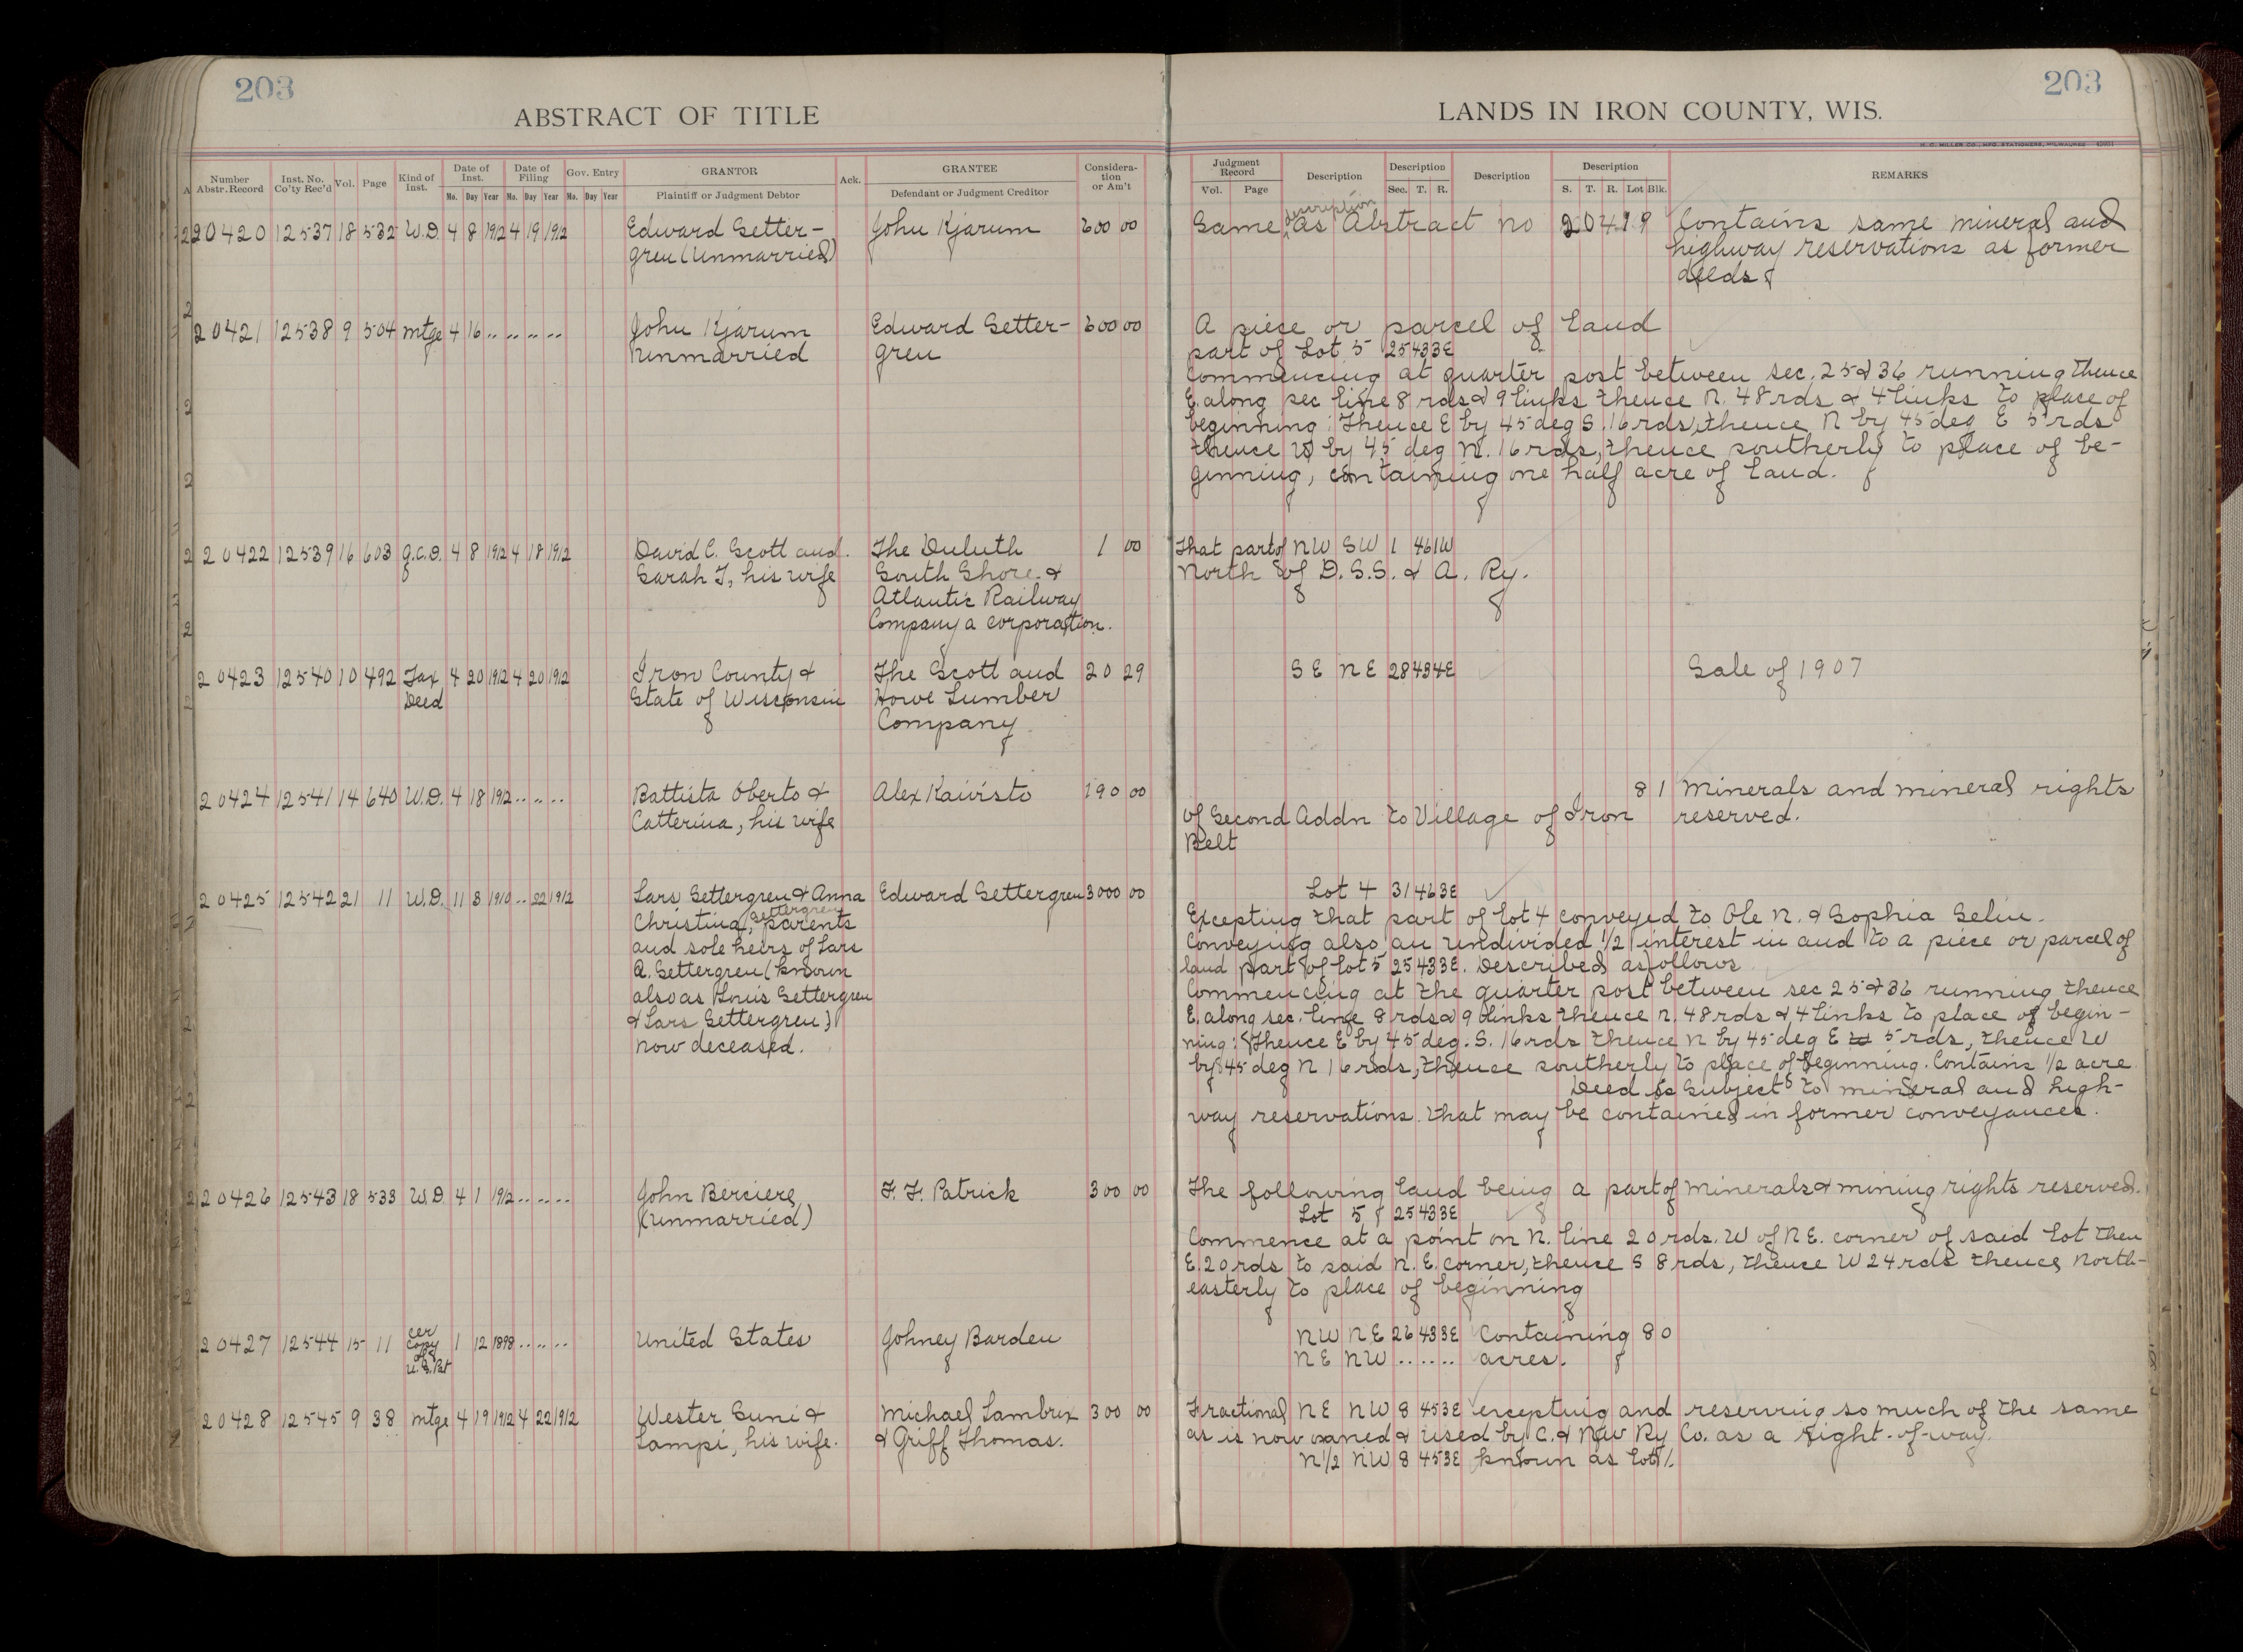 203
ABSTRACT OF TITLE
Number Abstr. Record Inst. No. Co'ty Rec'd Vol. Page Kind of Inst. Date of Inst. Date of Filing Gov. Entry GRANTOR Ack. GRANTEE Consideration or Am't
Mo. Day Year Mo. Day Year Mo. Day Year Plaintiff or Judgment Debtor Defendant or Judgment Creditor
203
LANDS IN IRON COUNTY, WIS.
H. C. MILLER CO., MFG. STATIONERS, MILWAUKEE
Judgment Record Description Description Description Description REMARKS
Vol. Page Sec. T. R. S. T. R. Lot Blk.
20420 12537 18 532 W.D. 4 8 1912 4 19 1912 Edward Setter- John Kjarum 600 00 Same description as Abstract no 20419 Contains same mineral and
gren (Unmarried) highway reservations as former
deeds.
20421 12538 9 504 mtge 4 16 .. .. .. .. John Kjarum Edward Setter- 600 00 A piece or parcel of land
Unmarried gren part of Lot 5 25 43 3E
Commencing at quarter post between sec. 25 & 36 running thence
E. along sec line 8 rds & 9 links thence N. 48 rds & 4 links to place of
beginning: Thence E by 45 deg S. 16 rds, thence N by 45 deg E 5 rds
thence W by 45 deg N. 16 rds, thence southerly to place of be-
ginning, containing one half acre of land.
20422 12539 16 603 Q.C.D. 4 8 1912 4 18 1912 David C. Scott and The Duluth 1 00 That part of NW SW 1 46 1W
Sarah J, his wife South Shore & North of D.S.S. & A. Ry.
Atlantic Railway
Company a corporation.
20423 12540 10 492 Tax 4 20 1912 4 20 1912 Iron County & The Scott and 20 29 SE NE 28 43 4E Sale of 1907
Deed State of Wisconsin Howe Lumber
Company
20424 12541 14 640 W.D. 4 18 1912 .. .. .. Battista Oberto & Alex Kaivisto 190 00 8 1 Minerals and mineral rights
Catterina, his wife of Second Addn to Village of Iron reserved.
Belt
20425 12542 21 11 W.D. 11 3 1910 .. 22 1912 Lars Settergren & Anna Edward Settergren 3000 00 Lot 4 31 46 3E
Christina, Settergren parents Excepting that part of lot 4 conveyed to Ole N. & Sophia Selin.
and sole heirs of Lars Conveying also an undivided 1/2 interest in and to a piece or parcel of
A. Settergren (known land part of lot 5 25 43 3E. Described as follows
also as Settergren Commencing at the quarter post between sec 25 & 36 running thence
& Lars Settergren) E. along sec. line 8 rds & 9 links thence N. 48 rds & 4 links to place of begin-
now deceased. ning: Thence E by 45 deg. S. 16 rds thence N by 45 deg E 5 rds, thence W
by 45 deg N 16 rds, thence southerly to place of beginning. Contains 1/2 acre
Deed is Subject to mineral and high-
way reservations that may be contained in former conveyances.
20426 12543 18 533 W.D. 4 1 1912 .. .. .. John Berciere F. F. Patrick 300 00 The following land being a part of Minerals & mining rights reserved.
(Unmarried) Lot 5 25 43 3E
Commence at a point on N. line 20 rds. W of NE. corner of said Lot then
E. 20 rds to said N. E. corner, thence S 8 rds, thence W 24 rds thence North-
easterly to place of beginning
20427 12544 15 11 cer copy of U.S. Pat 1 12 1898 .. .. .. United States Johney Barden NW NE 26 43 3E Containing 80
NE NW .. .. .. acres.
20428 12545 9 38 mtge 4 19 1912 4 22 1912 Wester Suni & Michael Lambrix 300 00 Fractional NE NW 8 45 3E excepting and reserving so much of the same
Lampi, his wife. & Griff Thomas. as is now owned & used by C. & NW Ry Co. as a right-of-way.
N1/2 NW 8 45 3E known as lot 1.